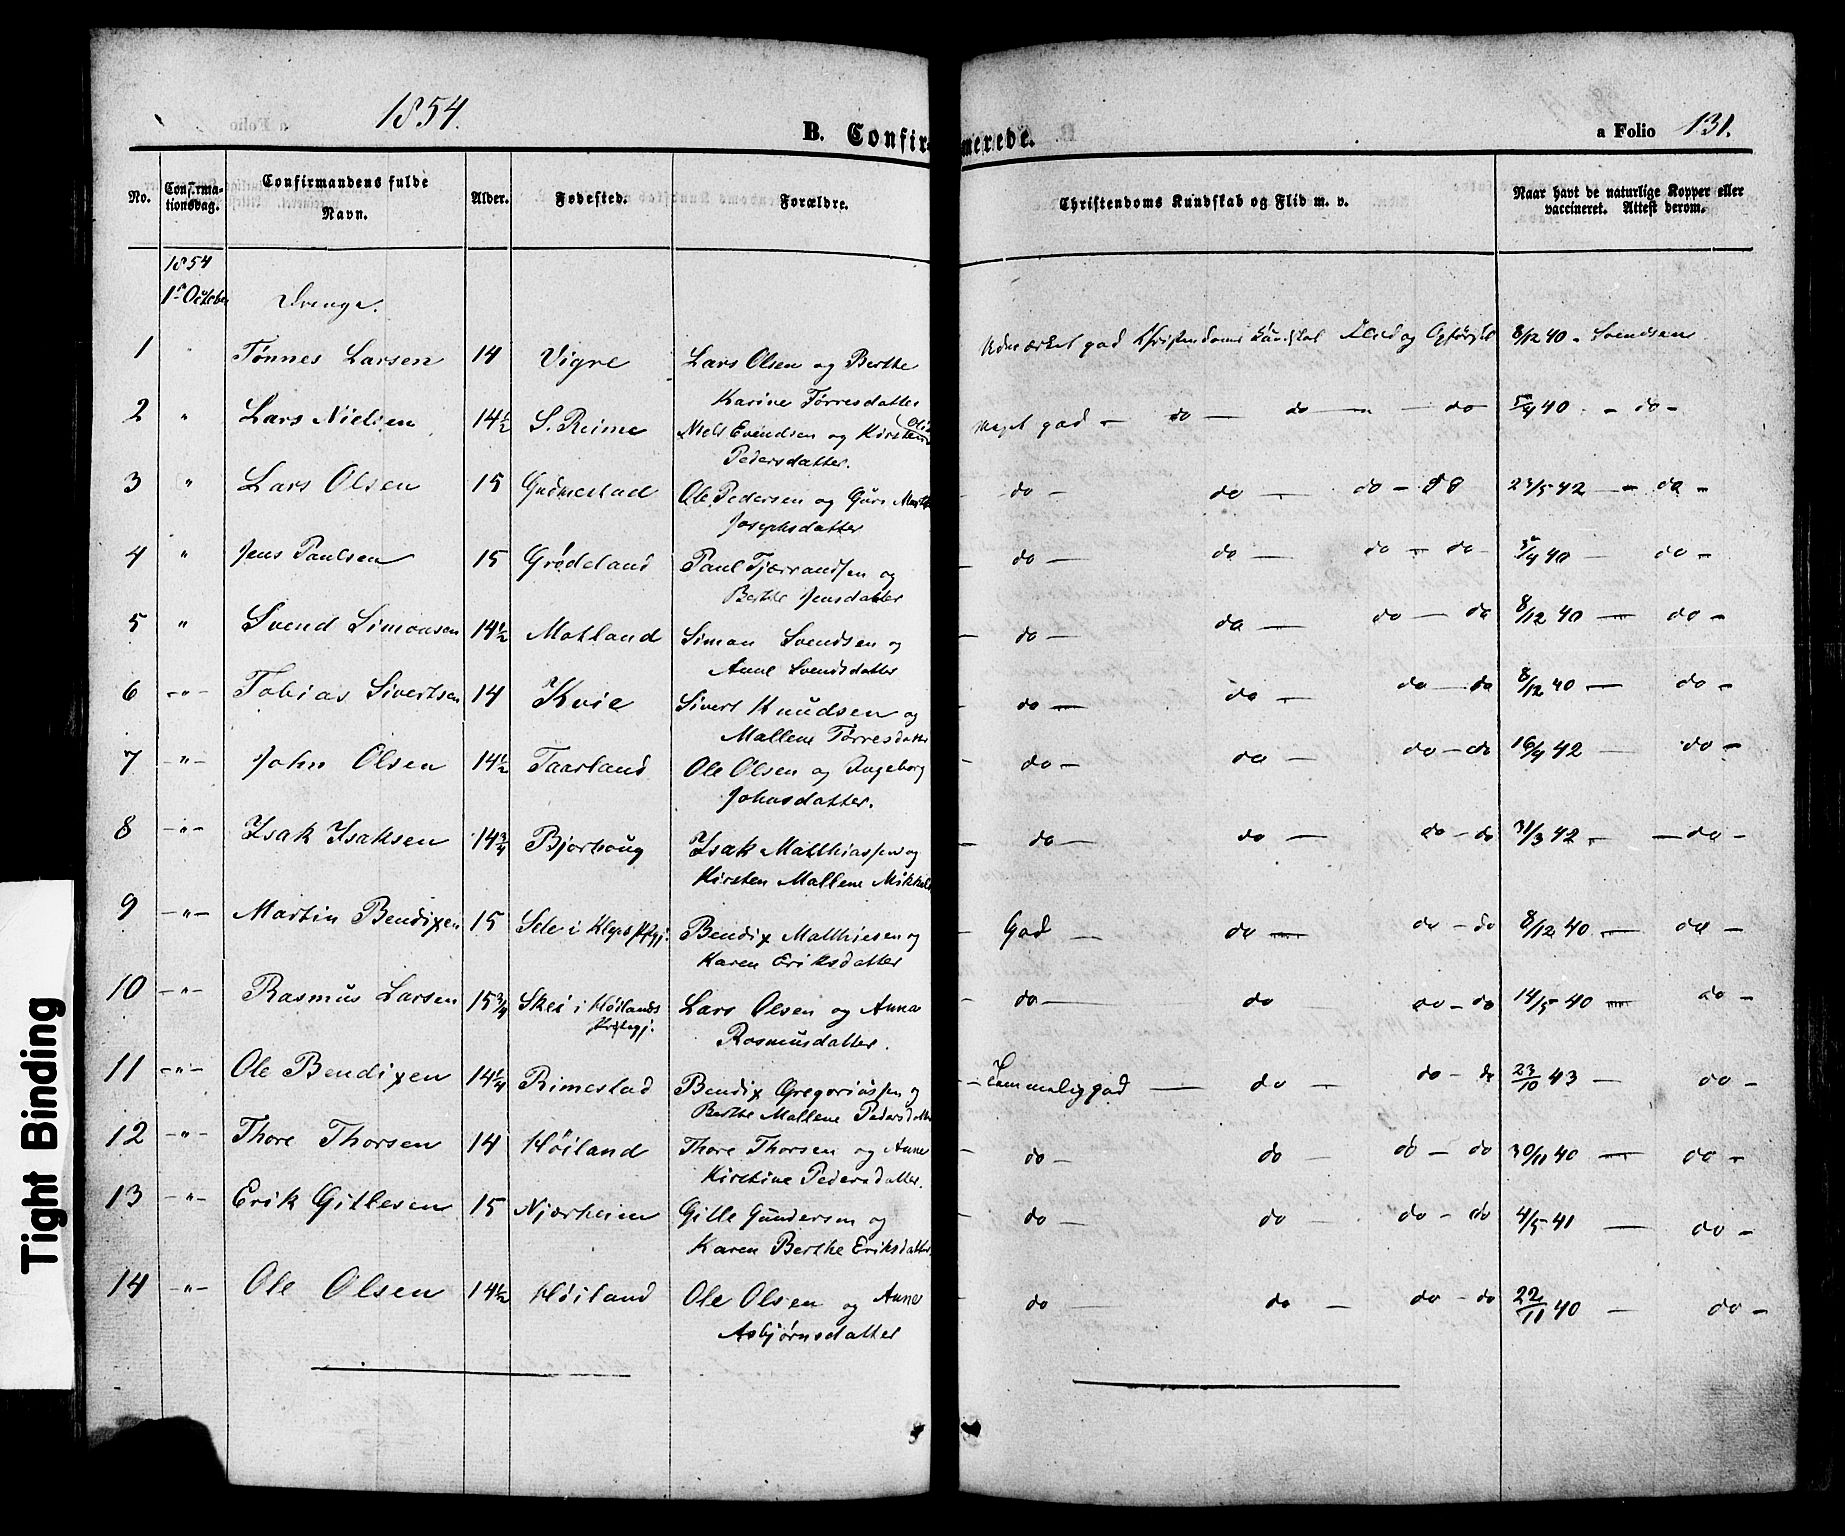 1854.
B. Confirmerede.
a Folio 131.
No. Confirmationsdag. Confirmandens fulde Navn. Alder. Fødested. Forældre. Christendoms Kundskab og Flid m. v. Naar havt de naturlige Kopper eller vaccineret. Attest derom.
1854
1ste October Drenge.
1 " Tønnes Larsen 14 Vigre Lars Olsen og Berthe Udmærket god Christendoms Kundskab Flid og Opførsel 8/12 40 - Svendsen
Karine Tørresdatter
2 " Lars Nielsen 14½ S. Reime Niels Evendsen og Kirsten Meget god - do - do - do 5/4 40 - do -
Pedersdatter.
3 " Lars Olsen 15 Gudmestad Ole Pedersen og Guri Marthe do - do - do - do 23/5 42 - do -
Josephsdatter
4 " Jens Paulsen 15 Grødeland Paul Tjærandsen og do - do - do - do 5/4 40 - do -
Berthe Jensdatter
5 " Svend Simonsen 14½ Motland Simon Svendsen og - do - do - do - do 8/12 40 - do -
Anne Svendsdatter
6 -"- Tobias Sivertsen 14 Kvie Sivert Knudsen og - do - do - do - do 8/12 40 - do -
Mallene Tørresdatter
7 -"- John Olsen 14½ Taarland Ole Olsen og Ingeborg - do - do - do - do 16/9 42 - do -
Johnsdatter.
8 -"- Isak Isaksen 14¾ Bjorhoug Isak Matthiassen og - do - do - do - do 31/3 42 - do -
Kirsten Mallene Mikkels
9 -"- Martin Bendixen 15 Sele i Kleps Pgj. Bendix Matthiesen og God - do - do - do 8/12 40 - do -
Karen Eriksdatter
10 -"- Rasmus Larsen 15¾ Skei i Høilands Lars Olsen og Anna - do - do do - do 14/5 40 - do -
Prstegj. Rasmusdatter.
11 -"- Ole Bendixen 14¼ Rimestad Bendix Gregoriussen og - Temmelig god - do - do - do 23/10 43 - do -
Berthe Mallene Pedersdatter
12 -"- Thore Thorsen 14 Høiland Thore Thorsen og Anne - do - do - do - do 30/11 40 - do -
Kirstine Pedersdatter.
13 -"- Erik Gitlesen 15 Njærheim Gitle Gundersen og - do - do - do - do 4/5 41 - do -
Karen Berthe Eriksdatter.
14 -"- Ole Olsen 14½ Høiland Ole Olsen og Anne - do - do - do - do 22/11 40 - do -
Asbjørnsdatter
Tight Binding